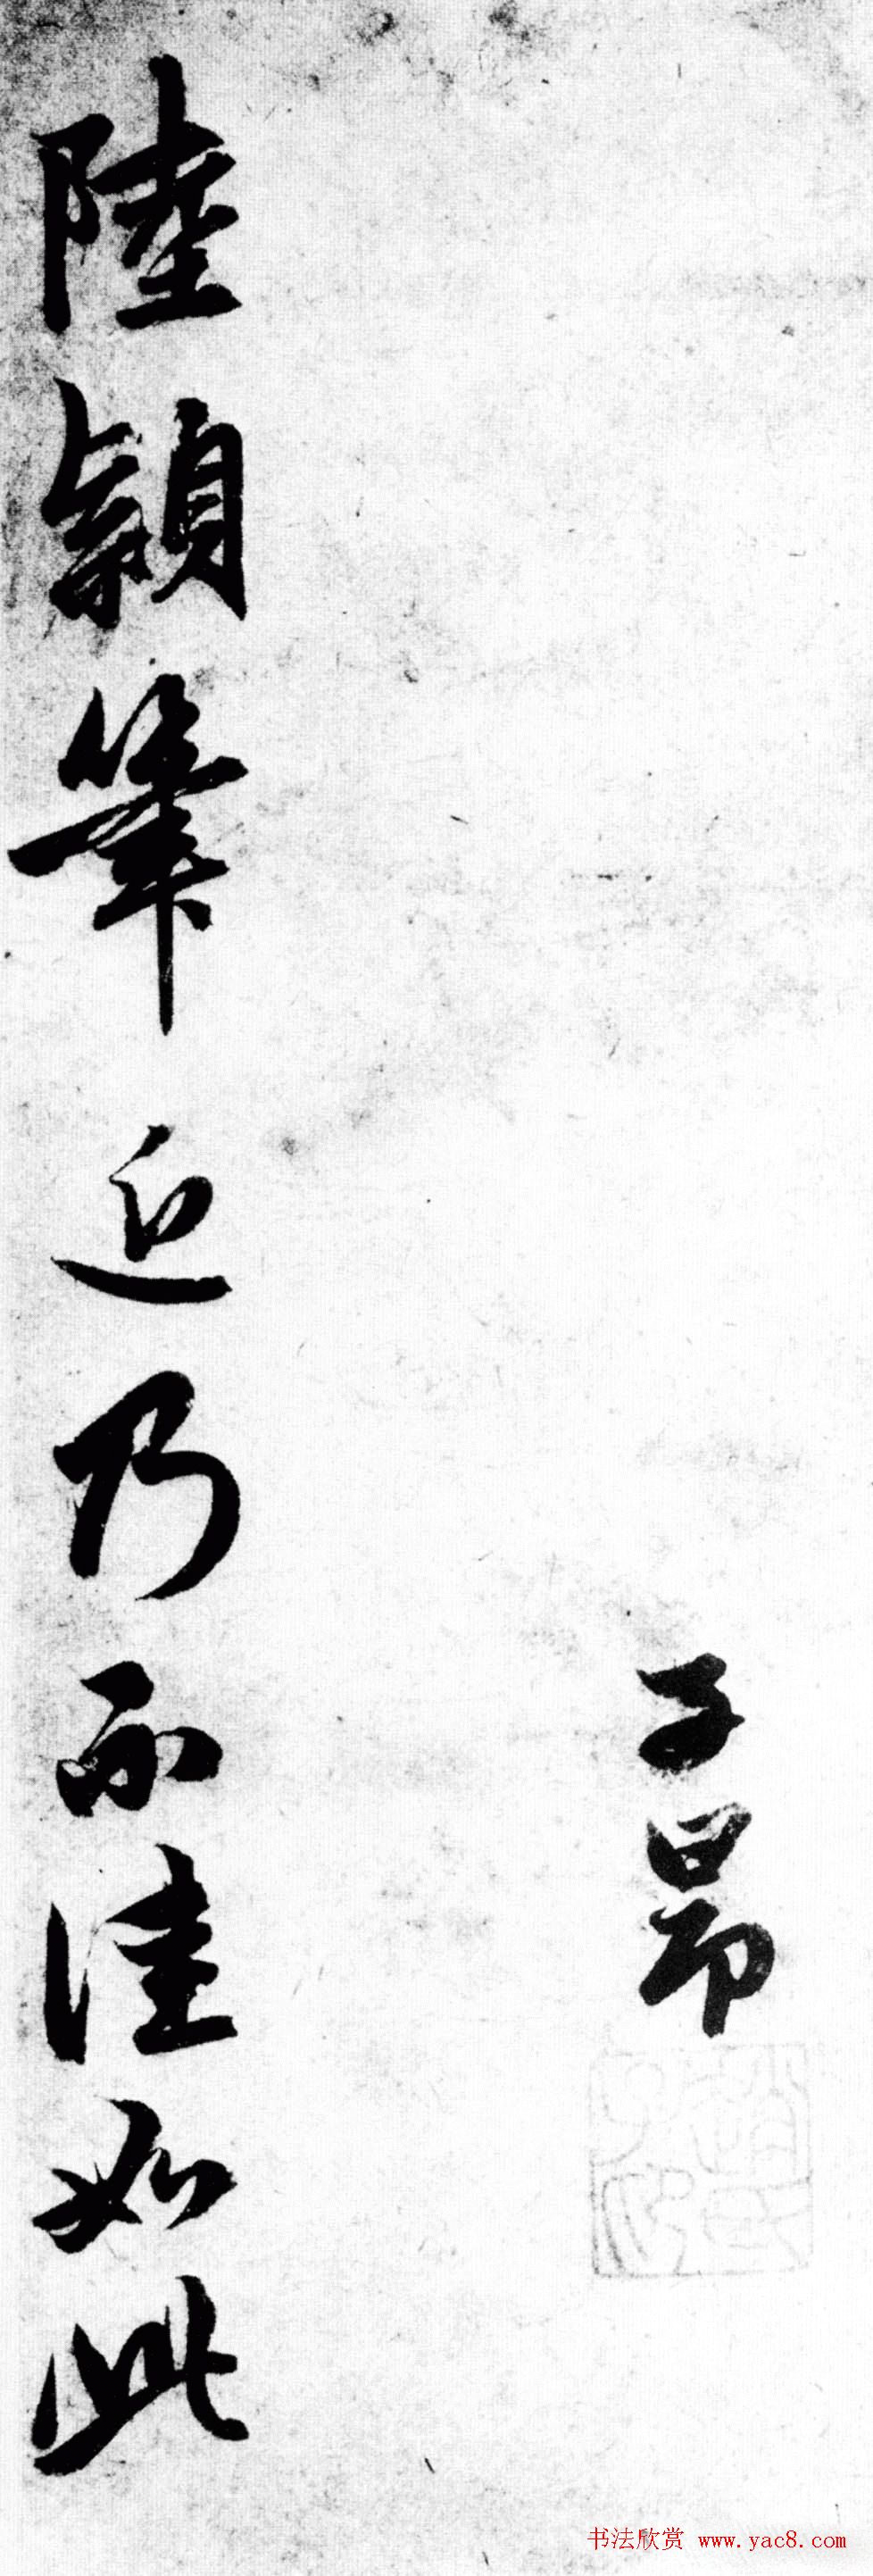 子昂
陸穎筆近乃不佳如此
书法欣赏 www.yac8.com